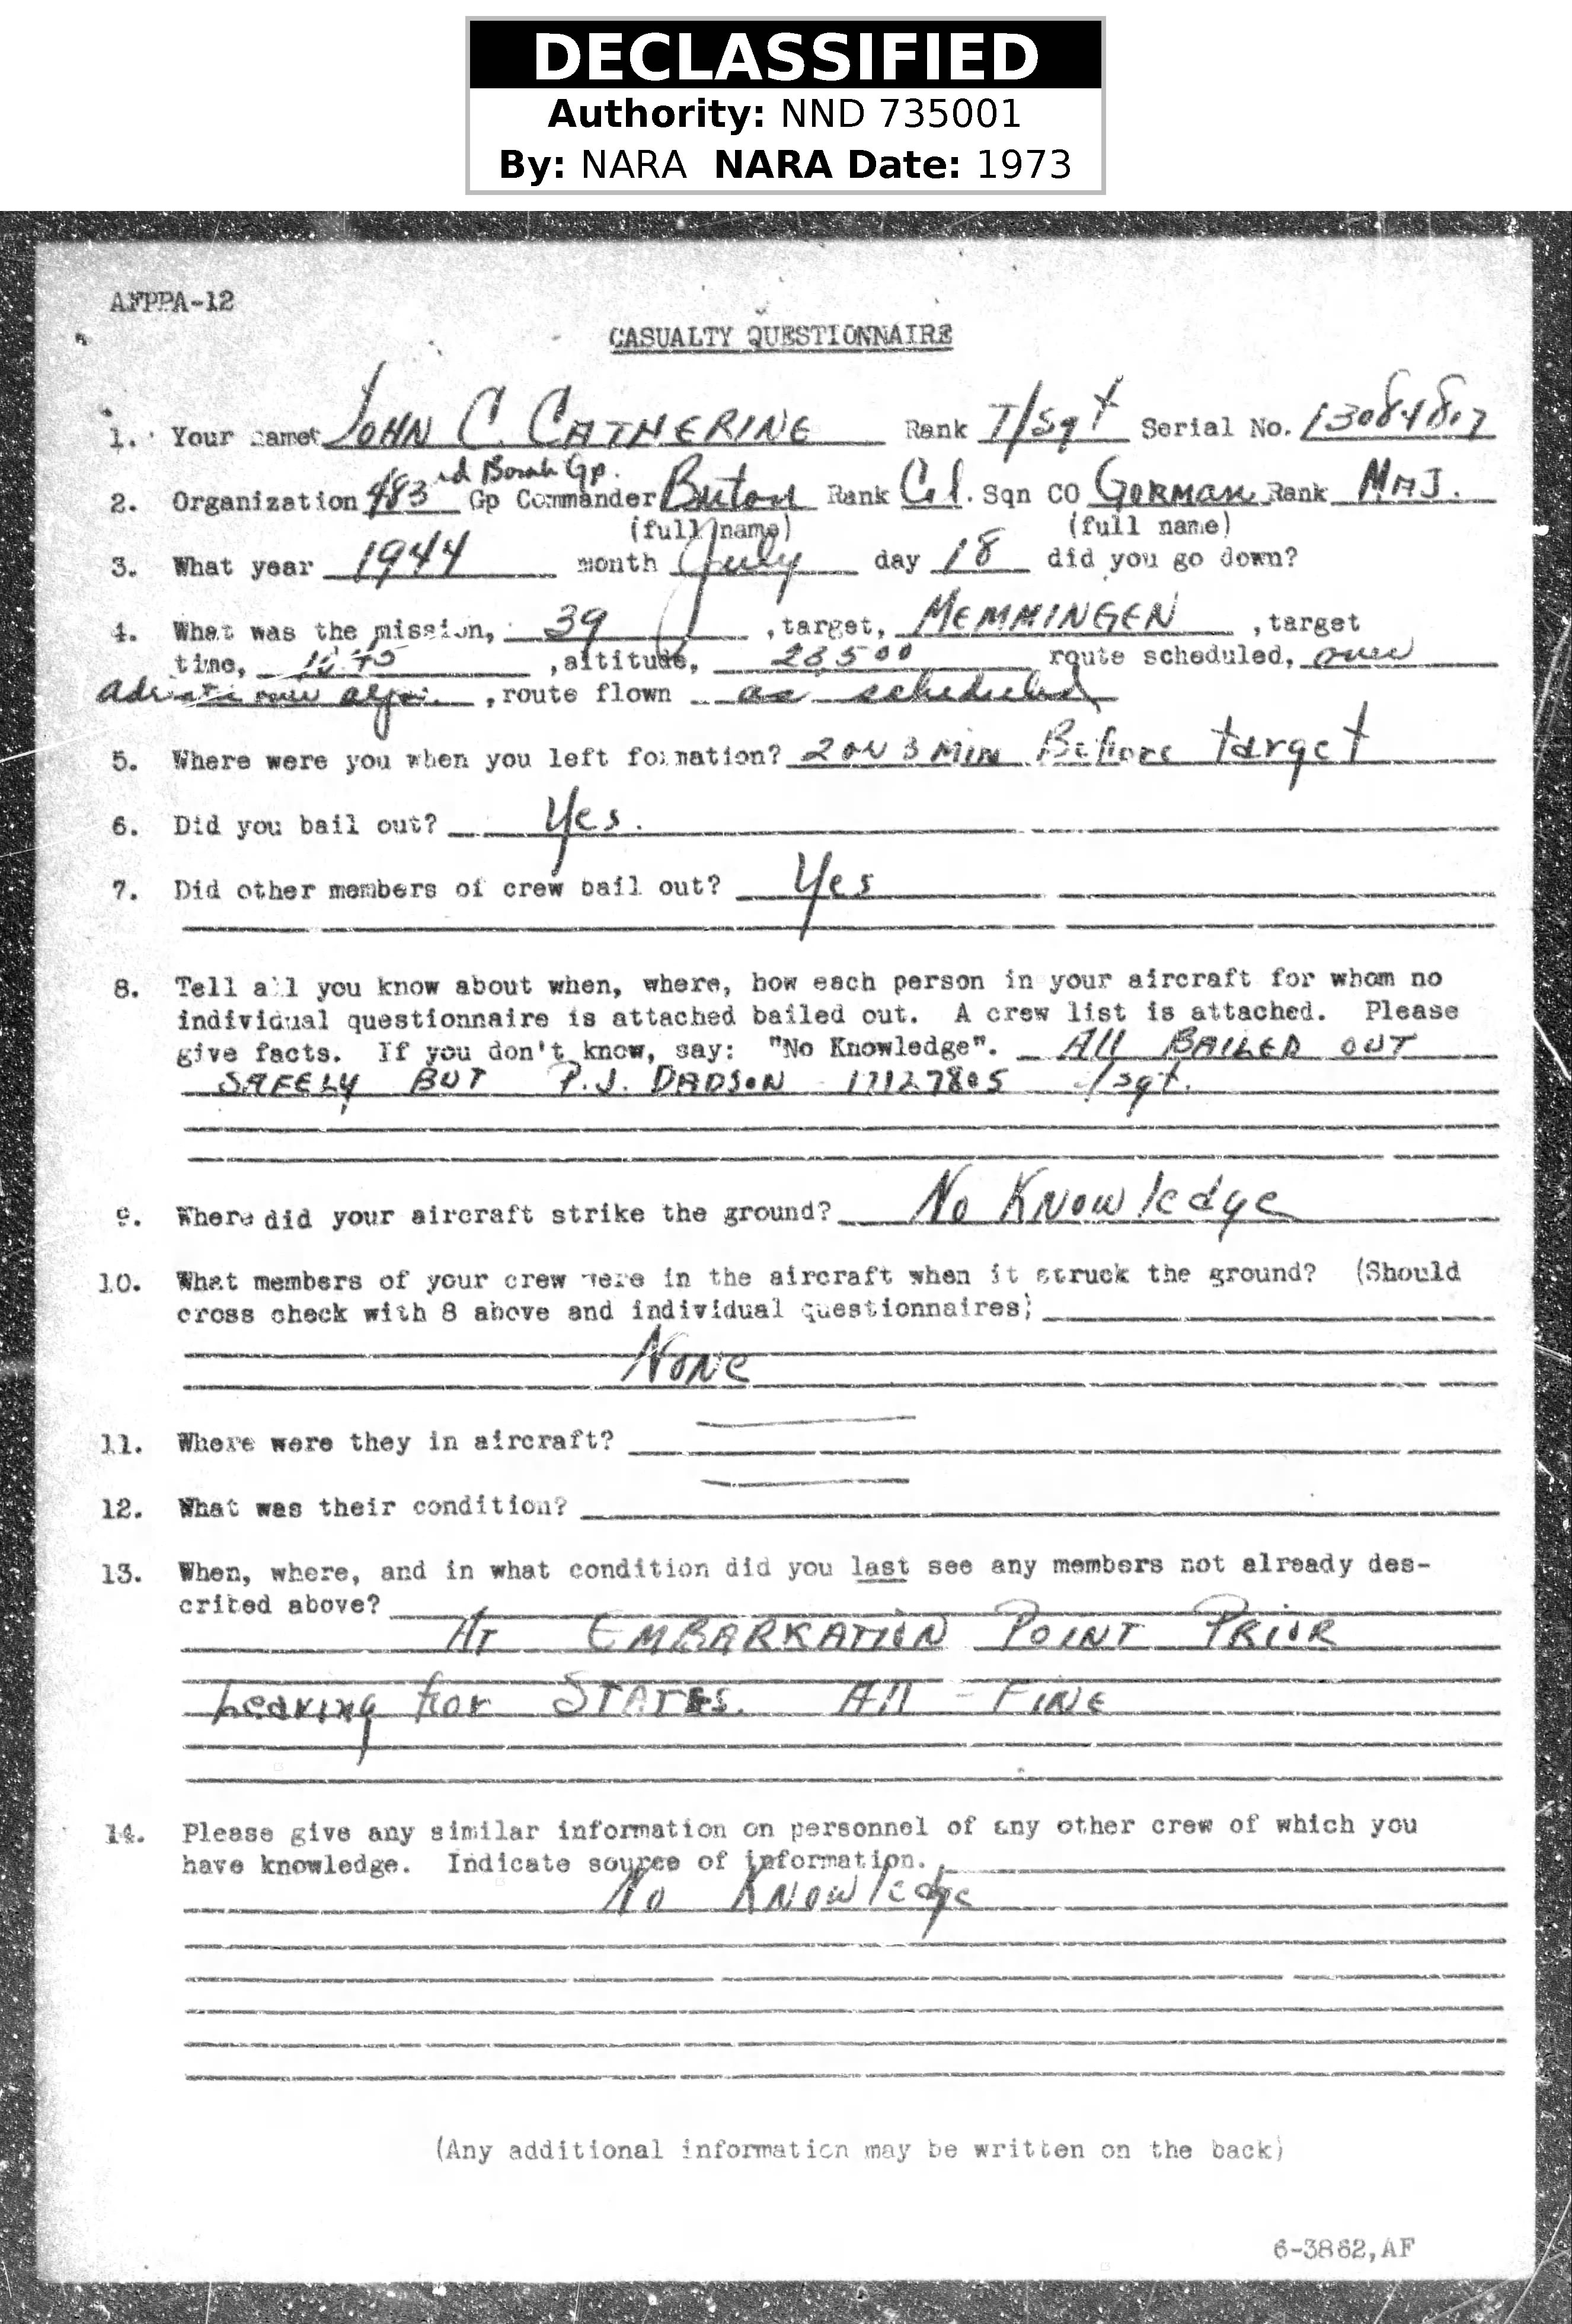 DECLASSIFIED
Authority: NND 735001
By: NARA NARA Date: 1973
AFPPA-12
CASUALTY QUESTIONNAIRE
1. Your name JOHN C. CATHERINE Rank T/Sgt Serial No. 13084807
rd Bomb Gp.
2. Organization 483 Gp Commander Rank Col. Sqn CO GORMAN Rank MAJ.
(full name) (full name)
3. What year 1944 month July day 18 did you go down?
4. What was the mission, 39 ,target, MEMMINGEN ,target
time, ,altitude, route scheduled, over
,route flown as scheduled
5. Where were you when you left formation? 2 or 3 MIN Before target
6. Did you bail out? Yes.
7. Did other members of crew bail out? Yes
8. Tell all you know about when, where, how each person in your aircraft for whom no
individual questionnaire is attached bailed out. A crew list is attached. Please
give facts. If you don't know, say: "No Knowledge". All BAILED OUT
SAFELY BUT P.J. DADSON 17127805 /sgt.
9. Where did your aircraft strike the ground? No Knowledge
10. What members of your crew were in the aircraft when it struck the ground? (Should
cross check with 8 above and individual questionnaires)
None
11. Where were they in aircraft?
12. What was their condition?
13. When, where, and in what condition did you last see any members not already des-
cribed above?
AT EMBARKATION POINT PRIOR
Leaving for STATES. All - FINE
14. Please give any similar information on personnel of any other crew of which you
have knowledge. Indicate source of information.
No Knowledge
(Any additional information may be written on the back)
6-3862,AF